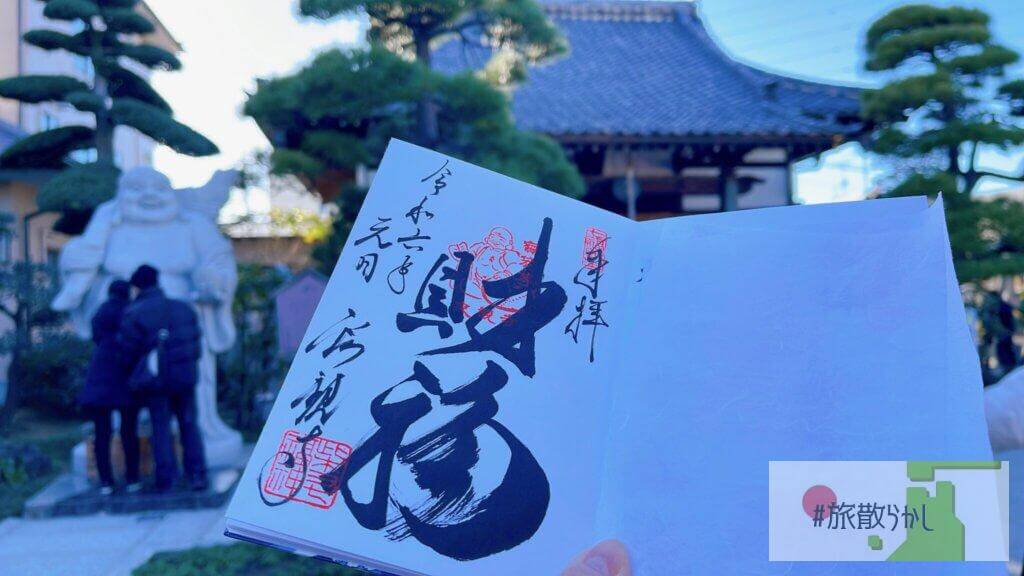 奉拝
財福
令和六年
元旦
#旅散らかし